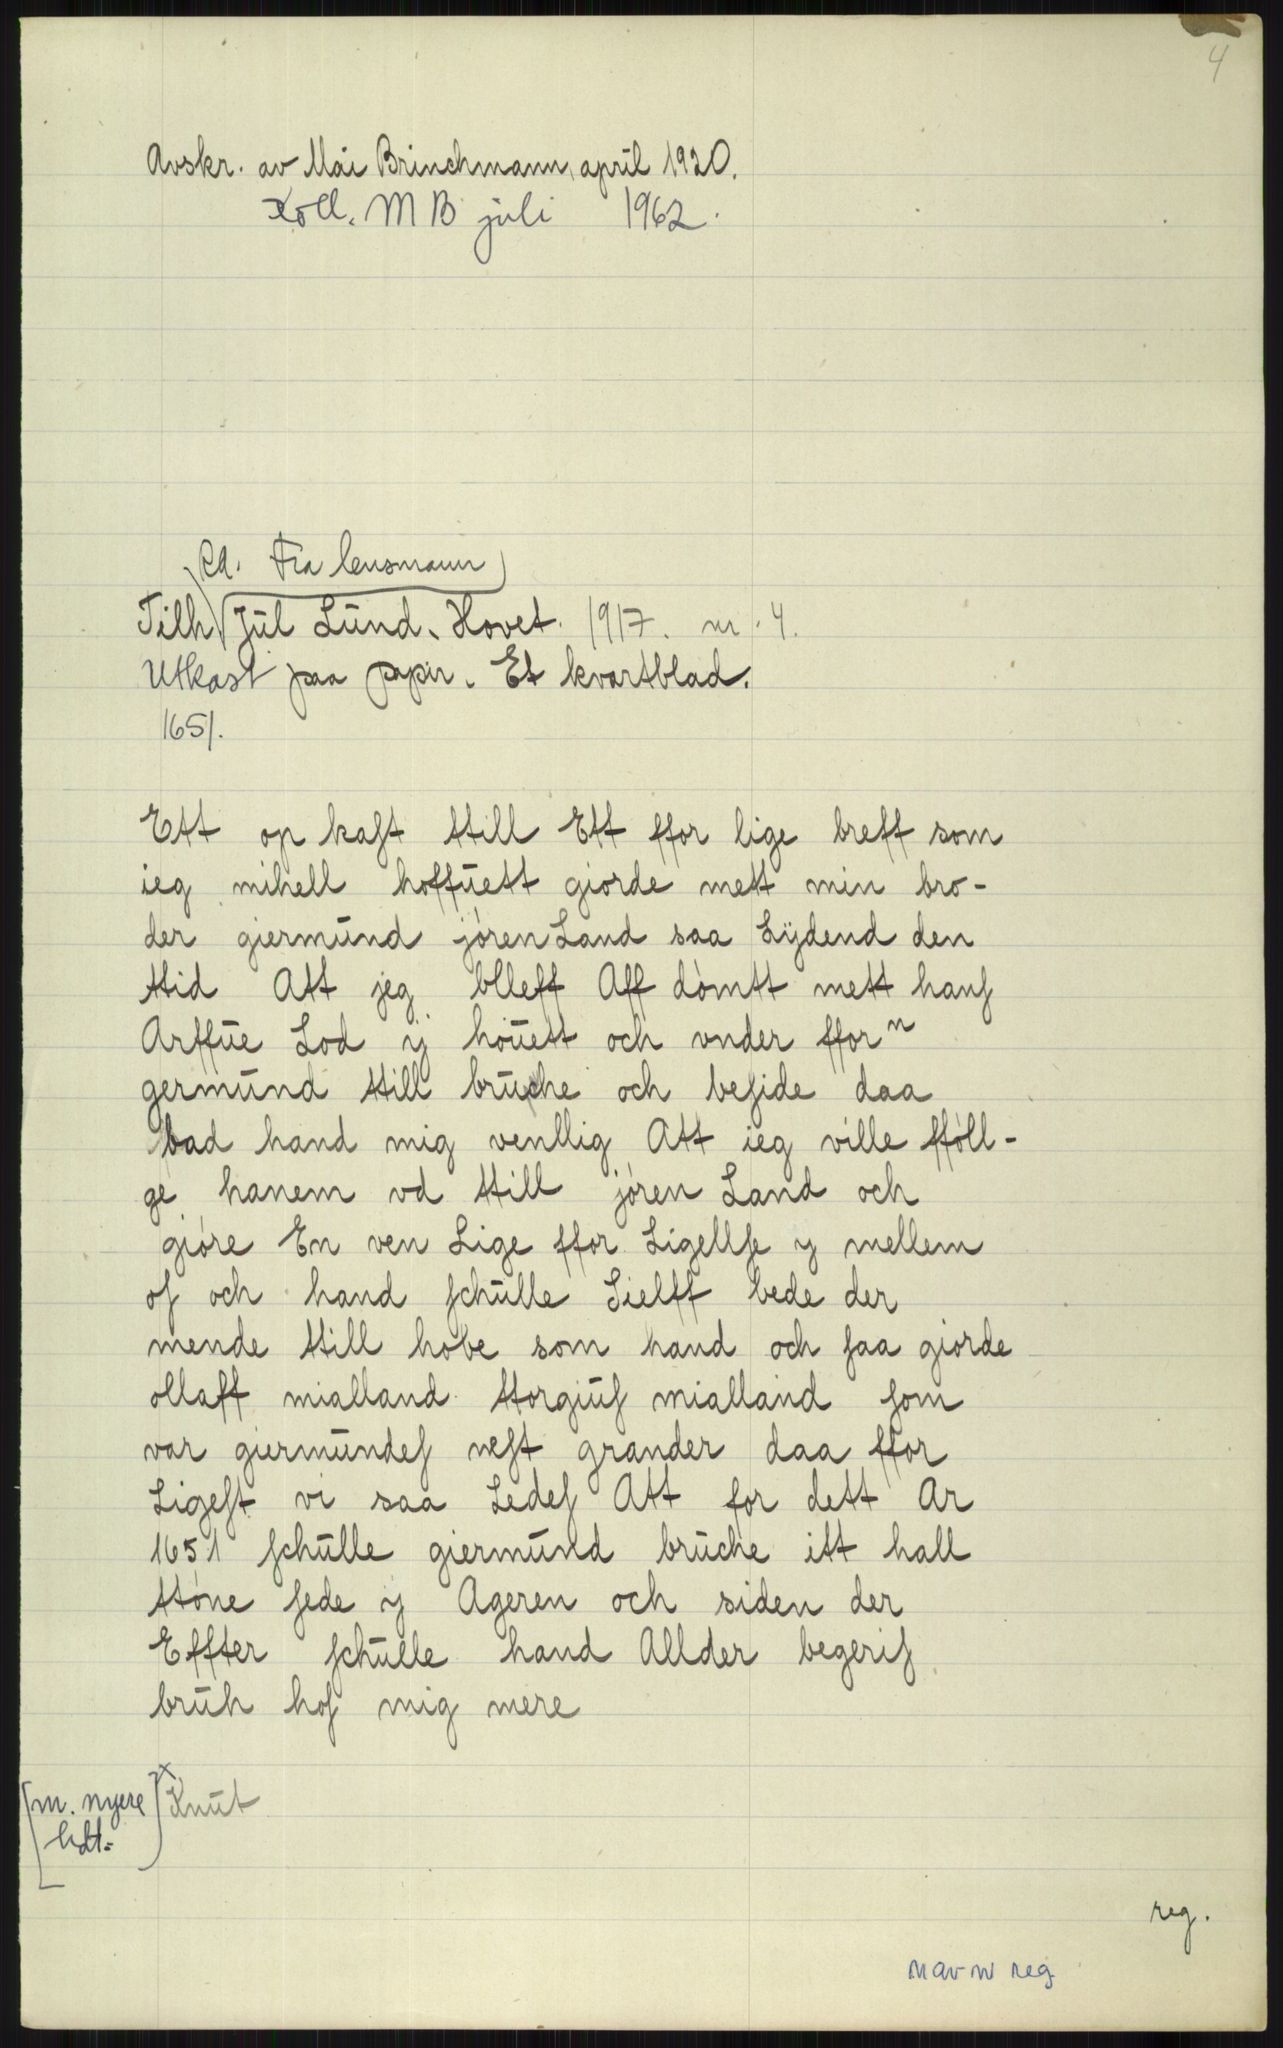 4
Avskr. av Mai Brinchmann, april 1920.
Koll. MB juli 1962.
Fra lensmann
Tilh Jul Lund. Hovet. 1917. nr. 4.
Utkast paa papir. Et kvartblad.
1651.
Ett op kaſt ttill Ett ffor lige breff som
ieg mihell hoffuett giorde mett min bro-
der giermund jörenLand saa Lÿdend den
ttid Att jeg blleff Aff dömtt mett hanſ
Arffue Lod ÿ höuett och vnder ffor n
germund ttill bruche och beſide daa
bad hand mig venllig Att ieg ville fföll-
ge hanem vd ttill jören Land och
giöre En ven Lige ffor Ligellſe y mellem
oſ och hand ſchulle Sielff bede der
mende ttill hobe som hand och ſaa giorde
ollaff mialland ttorgiuſ mialland ſom
var giermundeſ neſt grander daa ffor
Ligeſt vi saa Ledeſ Att for dett Ar
1651 ſchulle giermund bruche itt hall
ttöne ſede ÿ Ageren och siden der
Effter ſchulle hand Allder begeriſ
bruh hoſ mig mere
[m. nyere hdt.] x Knut
reg.
navn reg